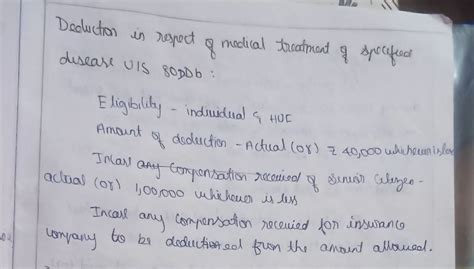 Deduction in respect of medical treatment of specified
disease U/S 80DDb :
Eligibility - individual & HUF
Amount of deduction - Actual (or) ₹ 40,000 whichever is less
Incase any Compensation received of Senior Citizen -
actual (or) 1,00,000 whichever is less
Incase any compensation received for insurance
company to be deductioned from the amount allowed.